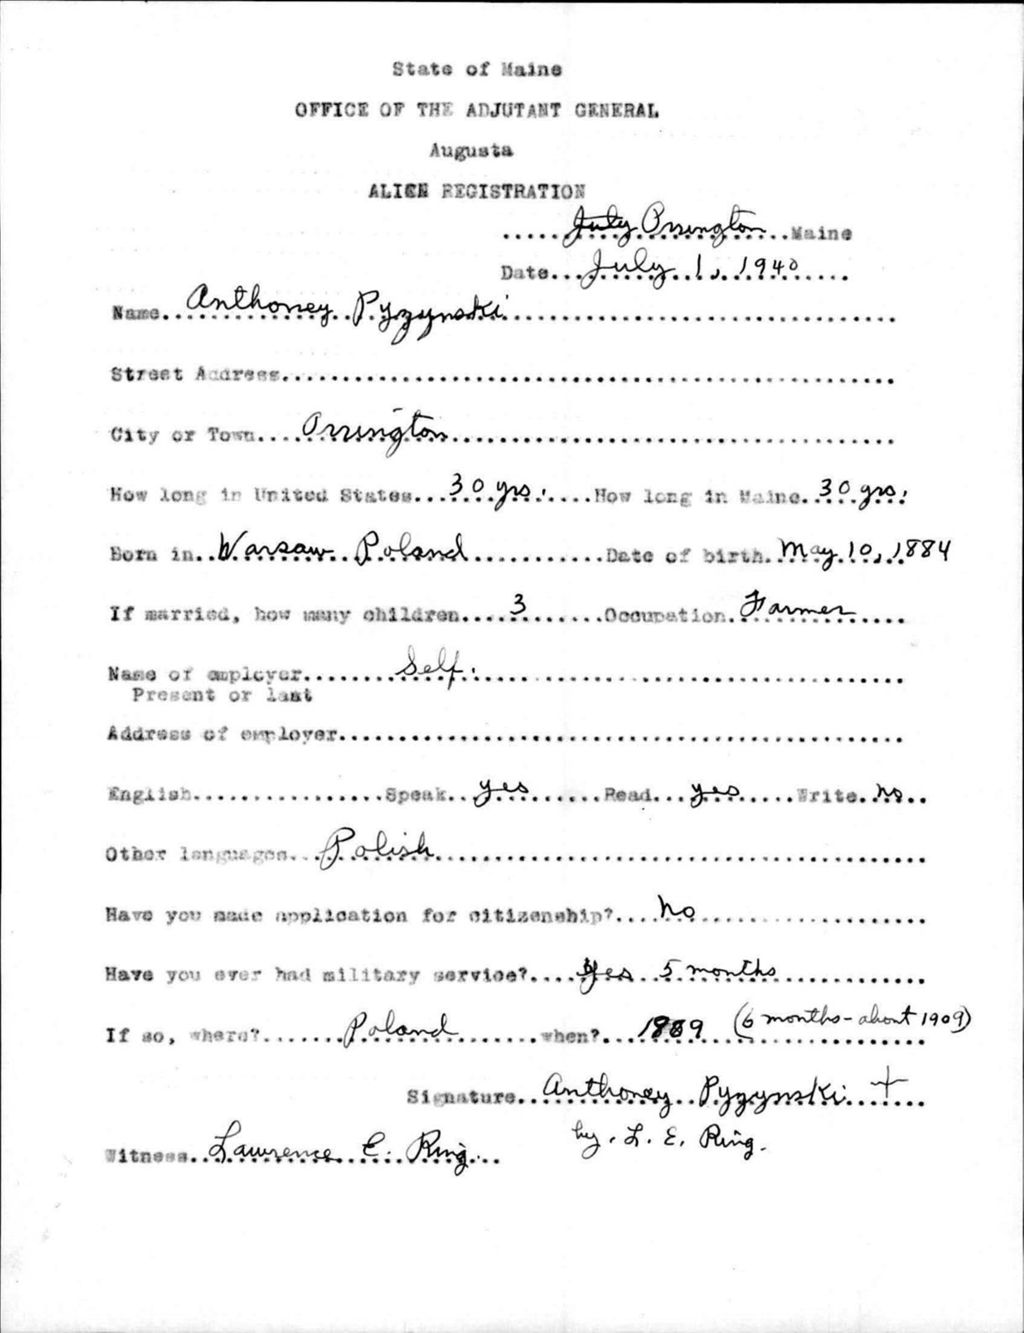 State of Maine
OFFICE OF THE ADJUTANT GENERAL
Augusta
ALIEN REGISTRATION
.....July Orrington...Maine
Date...July 1, 1940......
Name..Anthoney Pyzynski..............................
Street Address......................................
City or Town....Orrington..............................
How long in United States...30 yrs.....How long in Maine..30 yrs.
Born in..Warsaw Poland...........Date of birth.May 10, 1884
If married, how many children....3.......Occupation.Farmer....
Name of employer........Self.............................
Present or last
Address of employer......................................
English................Speak..yes......Read...yes.....Write..no..
Other languages...Polish..................................
Have you made application for citizenship?....no...................
Have you ever had military service?....Yes 5 months............
If so, where?.......Poland.........when?....1889 (6 months - about 1909)
Signature...Anthoney Pyzynski + ...
by. L. E. Ring.
Witness..Lawrence E. Ring...